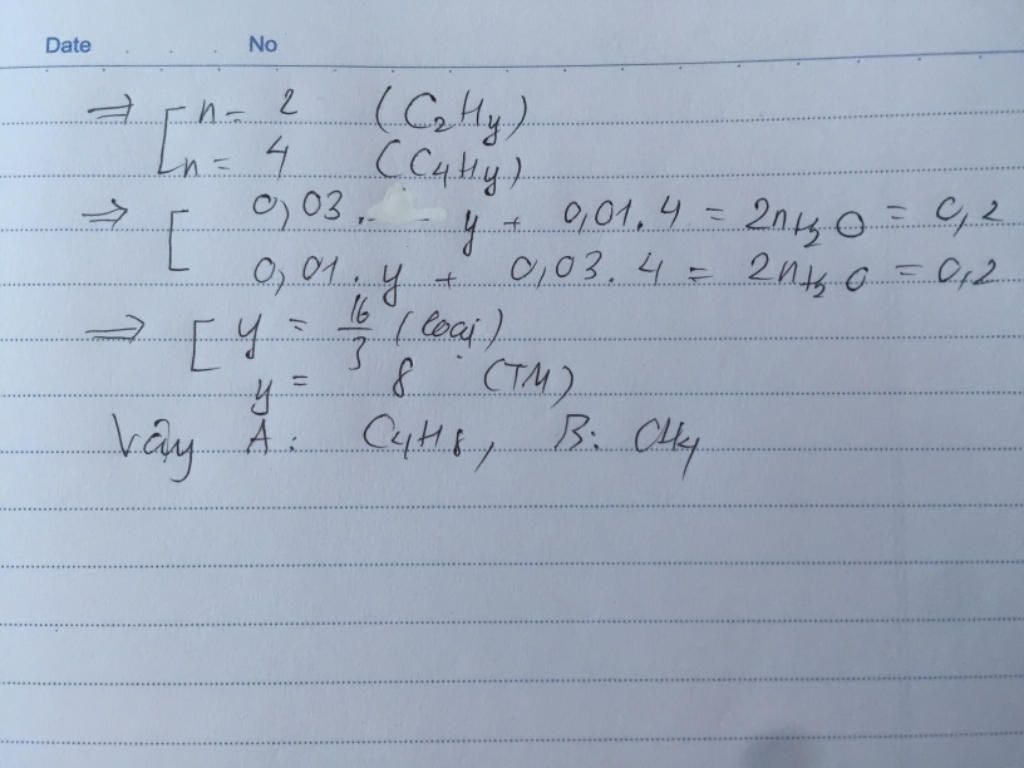 Date . . . No
⇒ [ n = 2 (C₂Hy)
n = 4 (C₄Hy)
⇒ [ 0,03. y + 0,01.4 = 2nH₂O = 0,2
0,01.y + 0,03.4 = 2nH₂O = 0,2
⇒ [ y = 16/3 (loại)
y = 8 (TM)
Vậy A: C₄H₈, B: CH₄